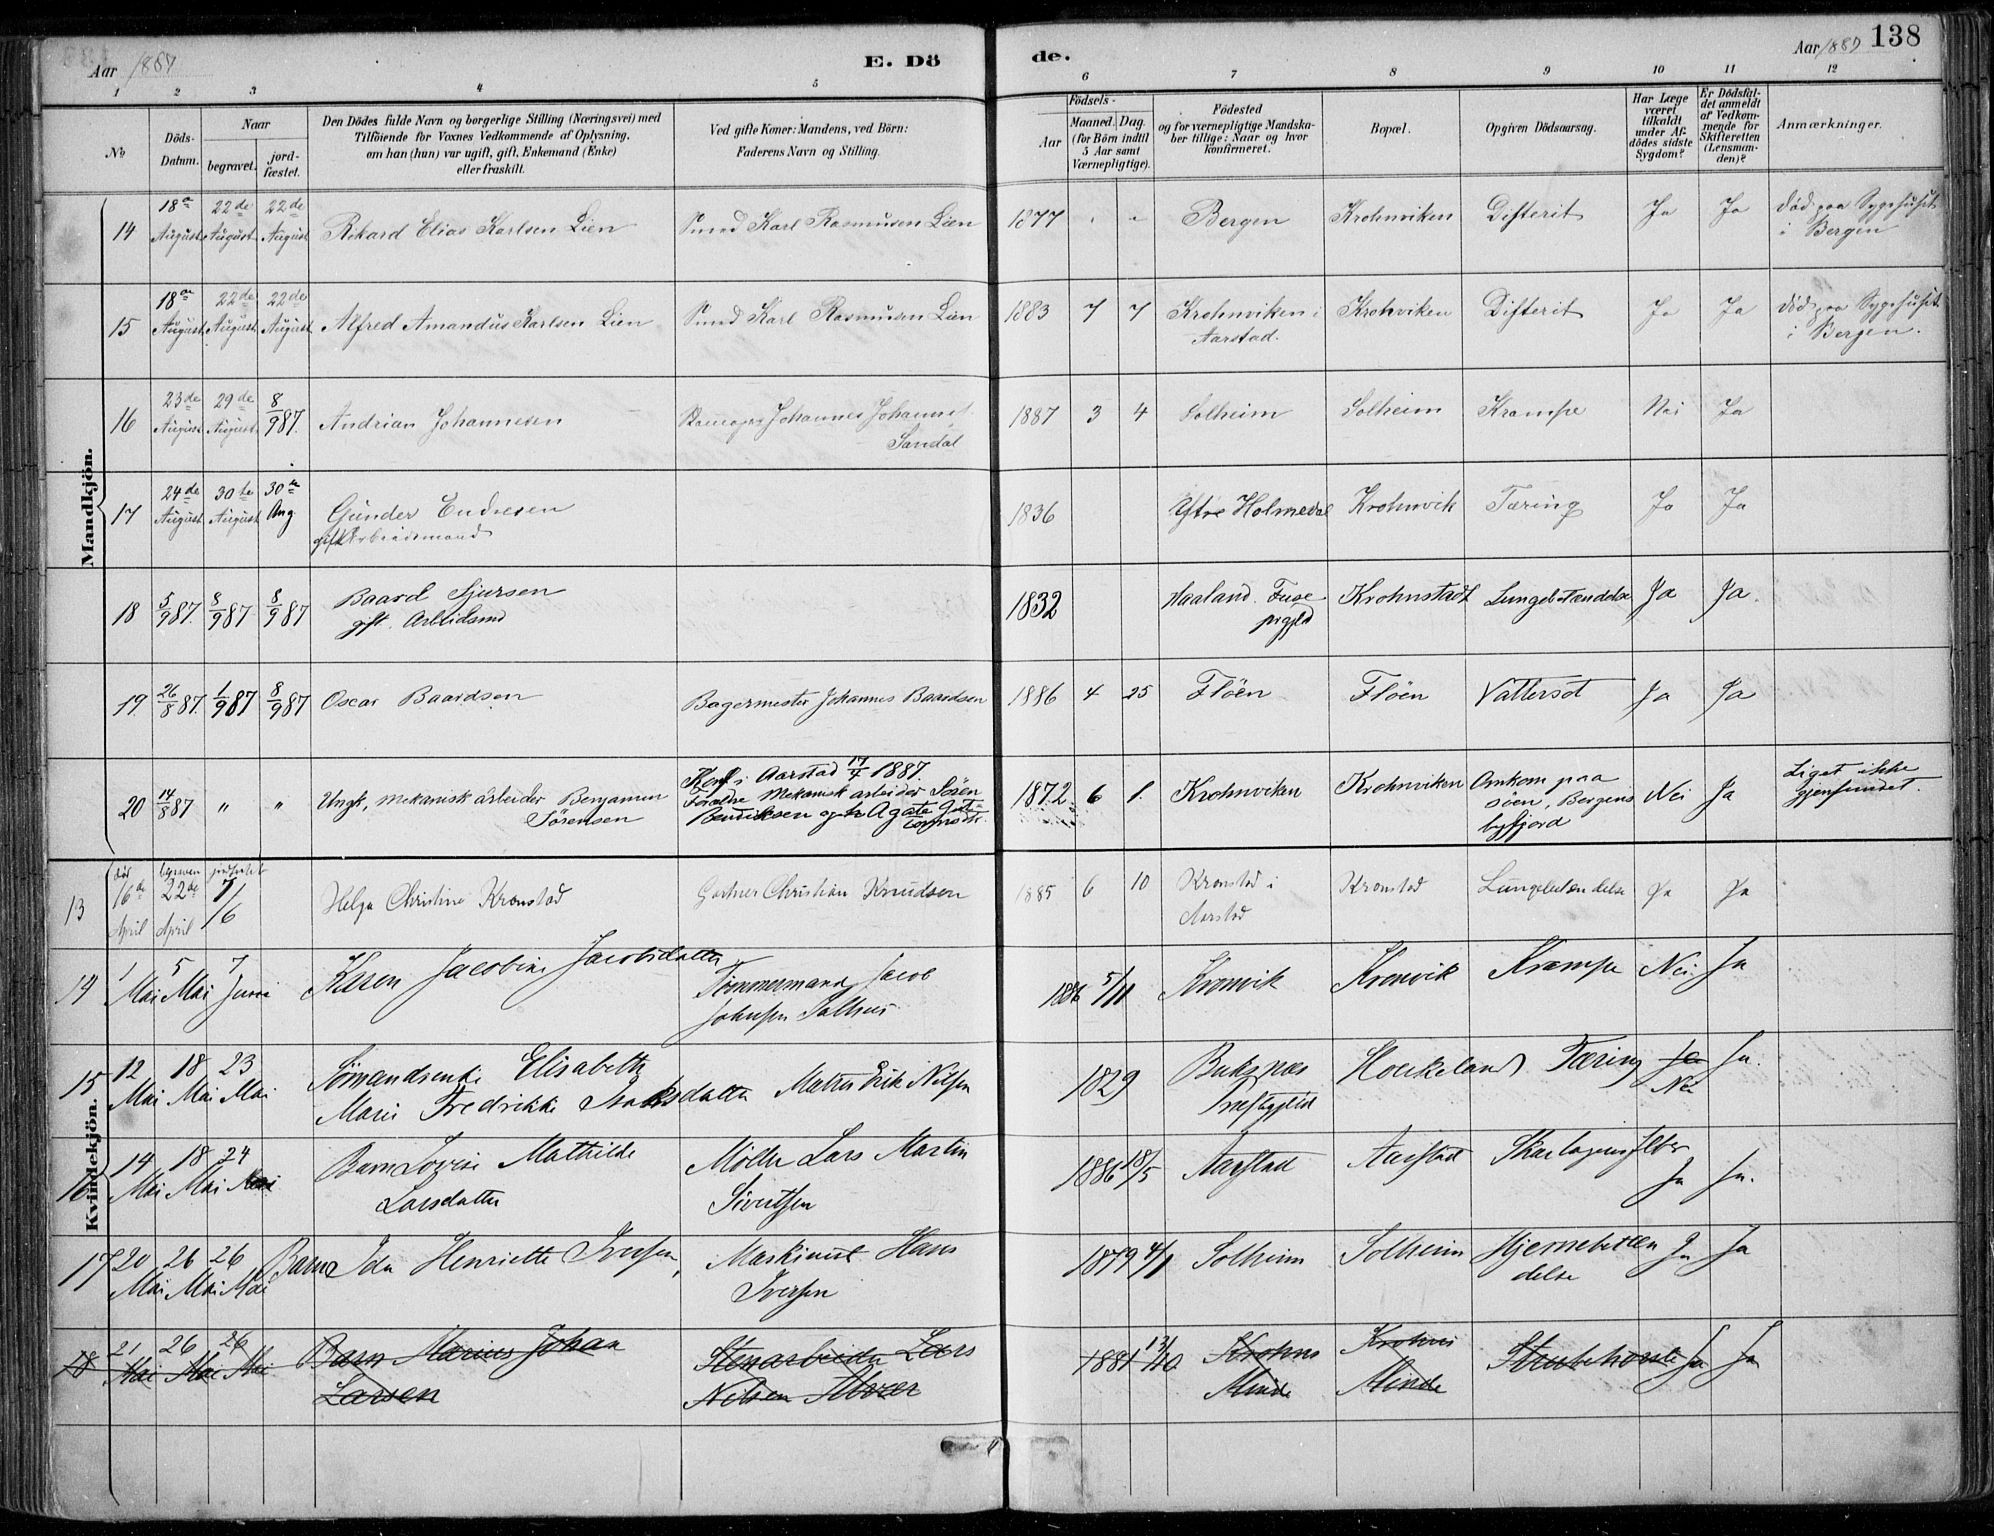 Aar 1887
E. Dö
de.
Aar 1887
138
1 2 3 4 5 6 7 8 9 10 11 12
No
Döds-Datum.
Naar
begravet.
jord-fæstet.
Den Dödes fulde Navn og borgerlige Stilling (Næringsvei) med
Tilföiende for Voxnes Vedkommende af Oplysning,
om han (hun) var ugift, gift, Enkemand (Enke)
eller fraskilt.
Ved gifte Koner: Mandens, ved Börn:
Faderens Navn og Stilling.
Födsels-
Aar
Maaned. Dag.
(for Börn indtil
5 Aar samt
Værnepligtige).
Födested
og for værnepligtige Mandska-
ber tillige: Naar og hvor
konfirmeret.
Bopæl.
Opgiven Dödsaarsag.
Har Læge
været
tilkaldt
under Af-
dödes sidste
Sygdom?
Er Dödsfal-
det anmeldt
af Vedkom-
mende for
Skifteretten
(Lensman-
den)?
Anmærkninger.
Mandkjön.
14 18de August 22de August 22de August Rikard Elias Karlsen Lien Smed Karl Rasmusen Lien 1877 " " Bergen Krohnviken Difterit Ja Ja död paa Sygehuset
i Bergen
15 18de August 22de August 22de August Alfred Amandus Karlsen Lien Smed Karl Rasmusen Lien 1883 7 7 Krohnviken i
Aarstad. Krohnviken Difterit Ja Ja död paa Sygehuset
i Bergen.
16 23de August 29de August 8/9 87. Andrian Johannesen Johannes Johannes
Sandal 1887 3 4 Solheim Solheim Krampe Nei Ja
17 24de August 30te August 30te Aug Gunder Endresen
gift Arbeidsmand 1836 Yttre Holmedal Krohnvik Tæring Ja Ja
18 5/9 87. 8/9 87 8/9 87 Baard Sjursen
gift. Arbeidsmd 1832 Haaland. Fuse
prgjld Krohnstadt Lungebetændelse Ja Ja.
19. 26/8 87. 1/9 87 8/9 87 Oscar Baardsen Bagermester Johannes Baardsen 1886 4 25 Flöen Flöen Vattersot Ja Ja
20 14/8 87 " " Ungk, mekanisk arbeider Benjamin
Sörensen Konf. i Aarstad 17/4 1887.
Forældre Mekanisk arbeider Sören
Bendiksen og h. Agate
1872 6 1. Krohnviken Krohnviken Omkom paa
söen, Bergens
byfjord Nei Ja Liget ikke
gjenfundet.
Kvindekjön.
13 död 16de April begraven 22de April jordfæstet 7/6 Helga Christine Kronstad Gartner Christian Knudsen 1885 6 10 Kronstad i
Aarstad Kronstad Lungebetændelse Ja Ja
14 1 Mai 5 Mai 7 Juni Karen Jacobine Jacobsdatter Tömmermand Jacob
Johnsen Solhus 1886 5/11 Kronvik Kronvik Krampe Nei. Ja
15 12 Mai 18 Mai 23 Mai Sömandsenke Elisabeth
Marie Fredrikke Isaksdatter Matros Erik Nilsen 1829 Buksnæs
Præstegjeld Houkeland Tæring Ja
Nei Ja.
16 14 Mai 18 Mai 24 Mai Barn Lovise Mathilde
Larsdatter Möller Lars Martin
Sivertsen 1886 18/5 Aarstad Aarstad Skarlagensfeber Ja Ja.
17 20 Mai 26 Mai 26 Mai Barn Ida Henriette Iversen, Maskinist Hans
Iversen 1879 4/1 Solheim Solheim Hjernebetæn
delse Ja Ja
18 21 Mai 26 Mai 26 Mai Barn Marius Johan
Larsen Stenarbeider Lars
Nilsen 1881 13/10. Krohns
Minde Krohns
Minde Strubehoste Ja Ja